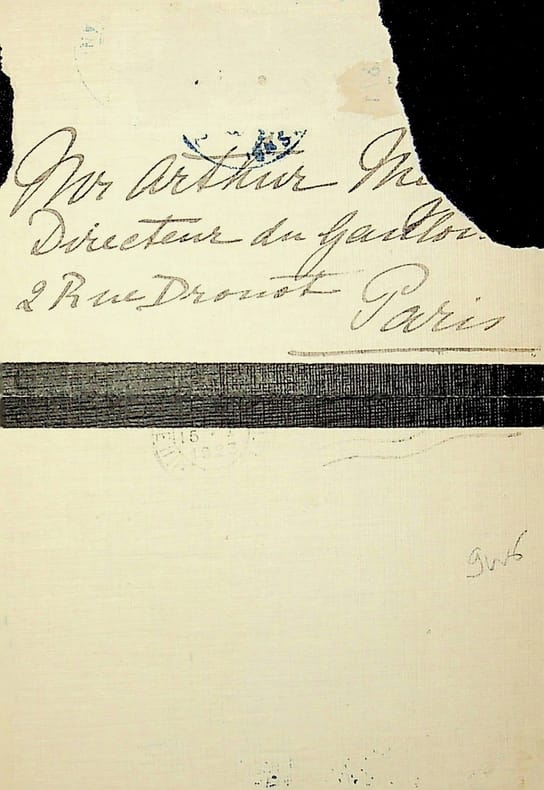 Mr Arthur Me
Directeur du Gaulois
2 Rue Drouot
Paris
15